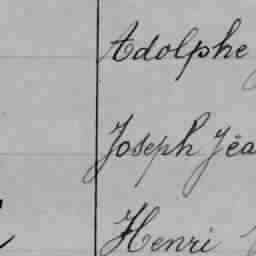 Adolphe
Joseph Jéa
Henri